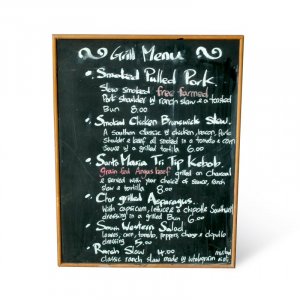 Grill Menu
Smoked Pulled Pork.
Slow smoked free farmed
Pork shoulder & ranch slaw & a toasted
Bun 8.00
Smoked Chicken Brunswick Stew.
A southern classic of chicken, bacon, Pork
Shoulder & beef all smoked in a tomato & corn
Sauce & a grilled tortilla 6.00
Santa Maria Tri Tip Kebab.
grain fed Angus beef grilled on Charcoal
& served with your choice of sauce, ranch
slaw & tortilla 8.00
Char grilled Asparagus.
With capsicum, lettuce & a chipotle Southwest
dressing in a grilled Bun 6.00
South Western Salad.
Leaves, corn, tomato, peppers, & chipotle
dressing 5.00
Ranch Slaw 4.00
classic ranch slaw made by wholegrain